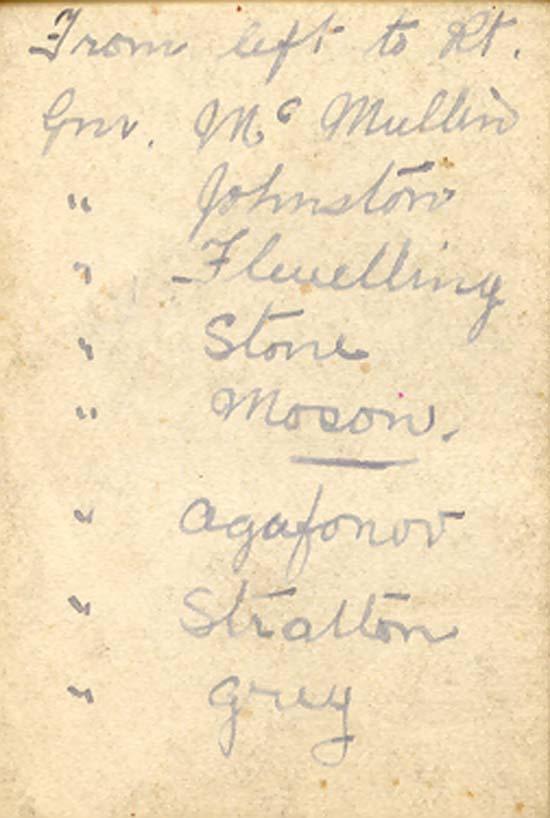 From left to Rt.
Gnr. Mc Mullin
" Johnston
" Flewelling
" Stone
" Moson.
" Agafonov
" Stratton
" Grey